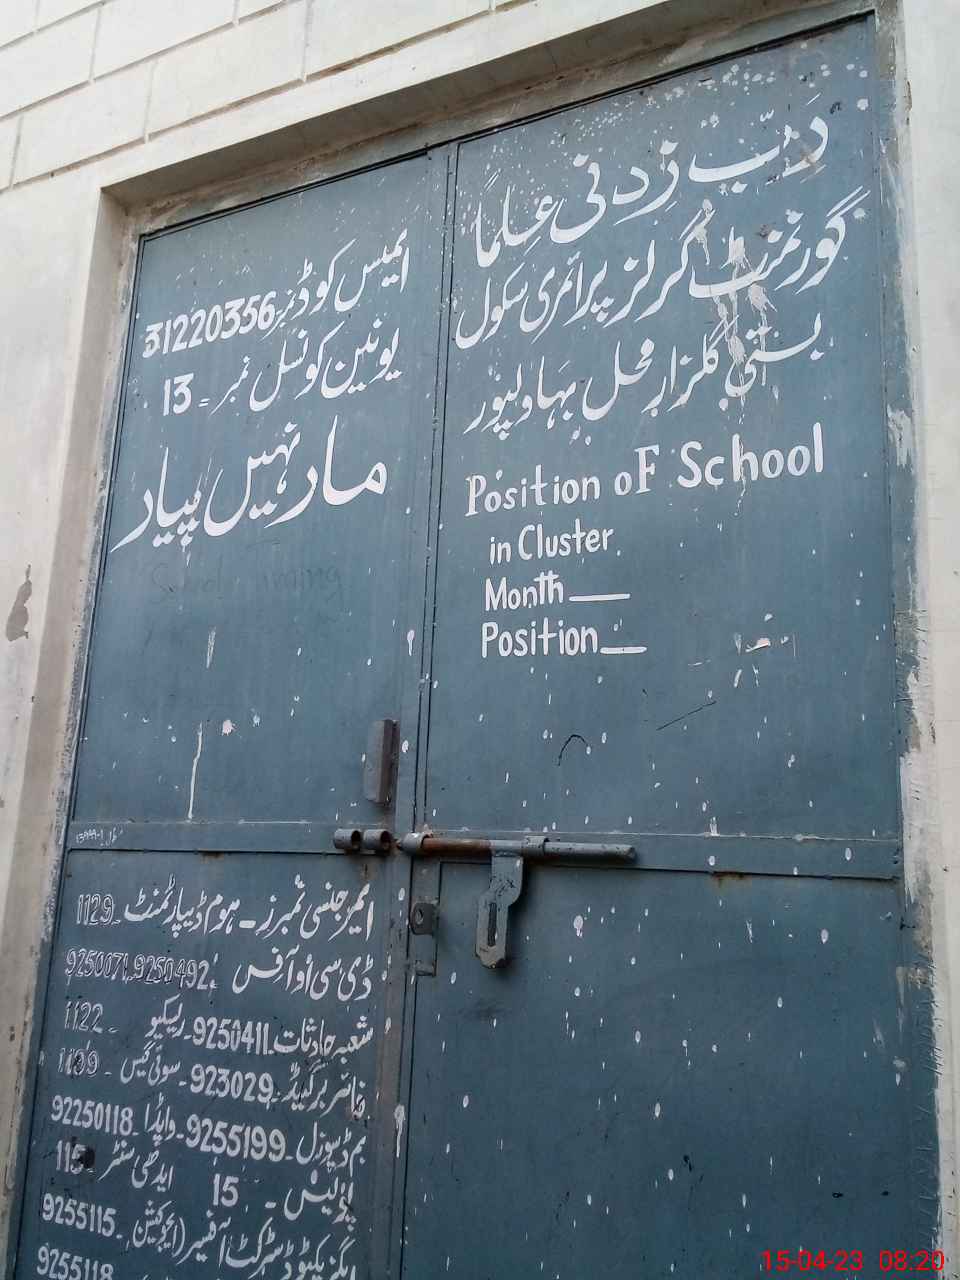 رَبِّ زِدنی عِلماً
گورنمنٹ گرلز پرائمری سکول
بستی گلزار محل بہاولپور
Position oF School
in Cluster
Month __
Position __
ایمیس کوڈ نمبر 31220356
یونین کونسل نمبر = 13
مار نہیں پیار
School Timing
ایمرجنسی نمبرز - ہوم ڈیپارٹمنٹ - 1129
ڈی سی او آفس 9250071, 9250492
شعبہ حادثات - 9250411 - ریسکیو - 1122
فائر بریگیڈ - 923029 - سوئی گیس - 1199
بم ڈسپوزل - 9255199 - واپڈا - 92250118
پولیس - 15 ایدھی سنٹر - 115
ایگزیکٹو ڈسٹرکٹ آفیسر (ایجوکیشن) - 9255115
9255118
15-04-23 08:20